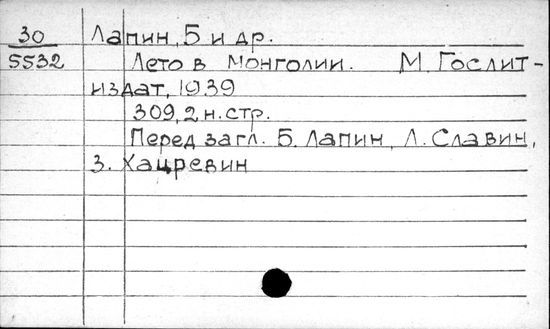 30 Лапин, Б и др.
5532 Лето в Монголии. М. Гослит-
издат, 1939
309, 2 н. стр.
Перед загл. Б. Лапин, Л. Славин,
З. Хацревин